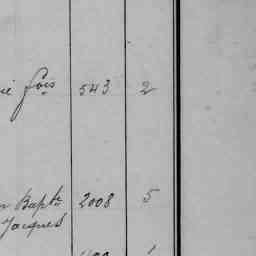 fois 543 2
Bapte 2008 5
Jacques